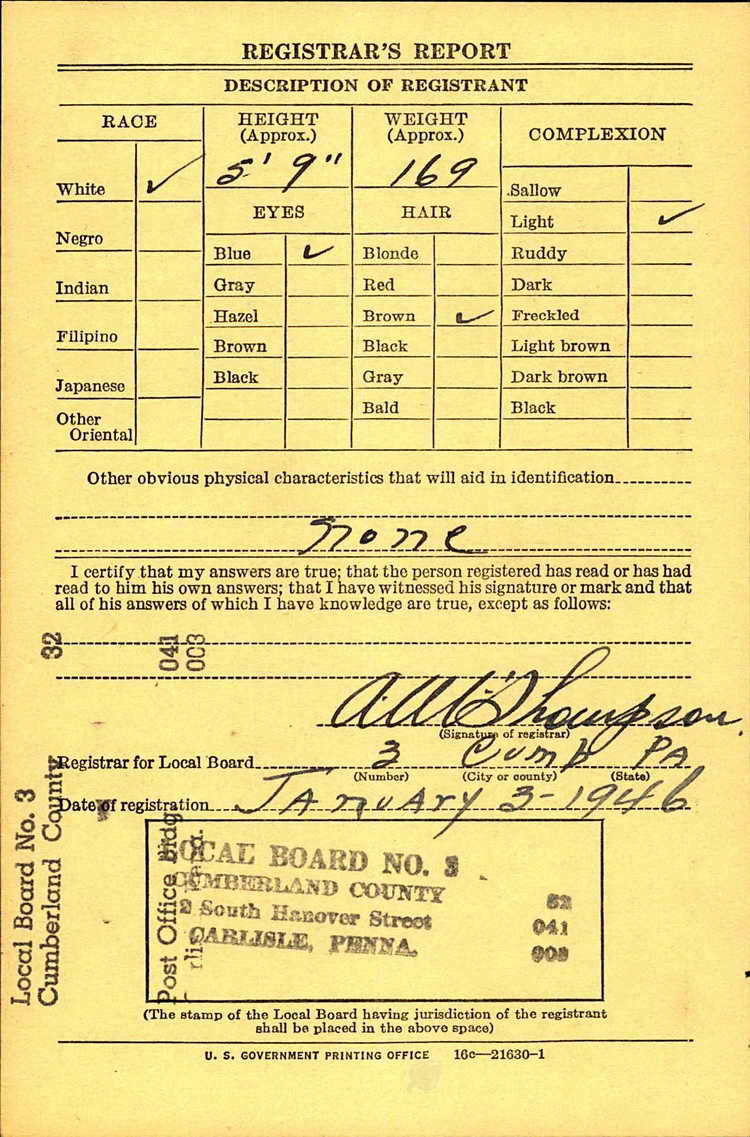 REGISTRAR'S REPORT
DESCRIPTION OF REGISTRANT
RACE
HEIGHT
(Approx.)
WEIGHT
(Approx.)
COMPLEXION
White ✓
5' 9"
169
Sallow
EYES
HAIR
Light ✓
Negro
Blue ✓
Blonde
Ruddy
Indian
Gray
Red
Dark
Hazel
Brown ✓
Freckled
Filipino
Brown
Black
Light brown
Japanese
Black
Gray
Dark brown
Other
Oriental
Bald
Black
Other obvious physical characteristics that will aid in identification
None
I certify that my answers are true; that the person registered has read or has had
read to him his own answers; that I have witnessed his signature or mark and that
all of his answers of which I have knowledge are true, except as follows:
32
041
003
Thompson
(Signature of registrar)
Registrar for Local Board 3 Cumb PA
(Number) (City or county) (State)
Date of registration JANUARY 3-1946
Local Board No. 3
Cumberland County
Post Office Bldg
LOCAL BOARD NO. 3
CUMBERLAND COUNTY
2 South Hanover Street
CARLISLE, PENNA.
32
041
003
(The stamp of the Local Board having jurisdiction of the registrant
shall be placed in the above space)
U. S. GOVERNMENT PRINTING OFFICE 16c—21630-1